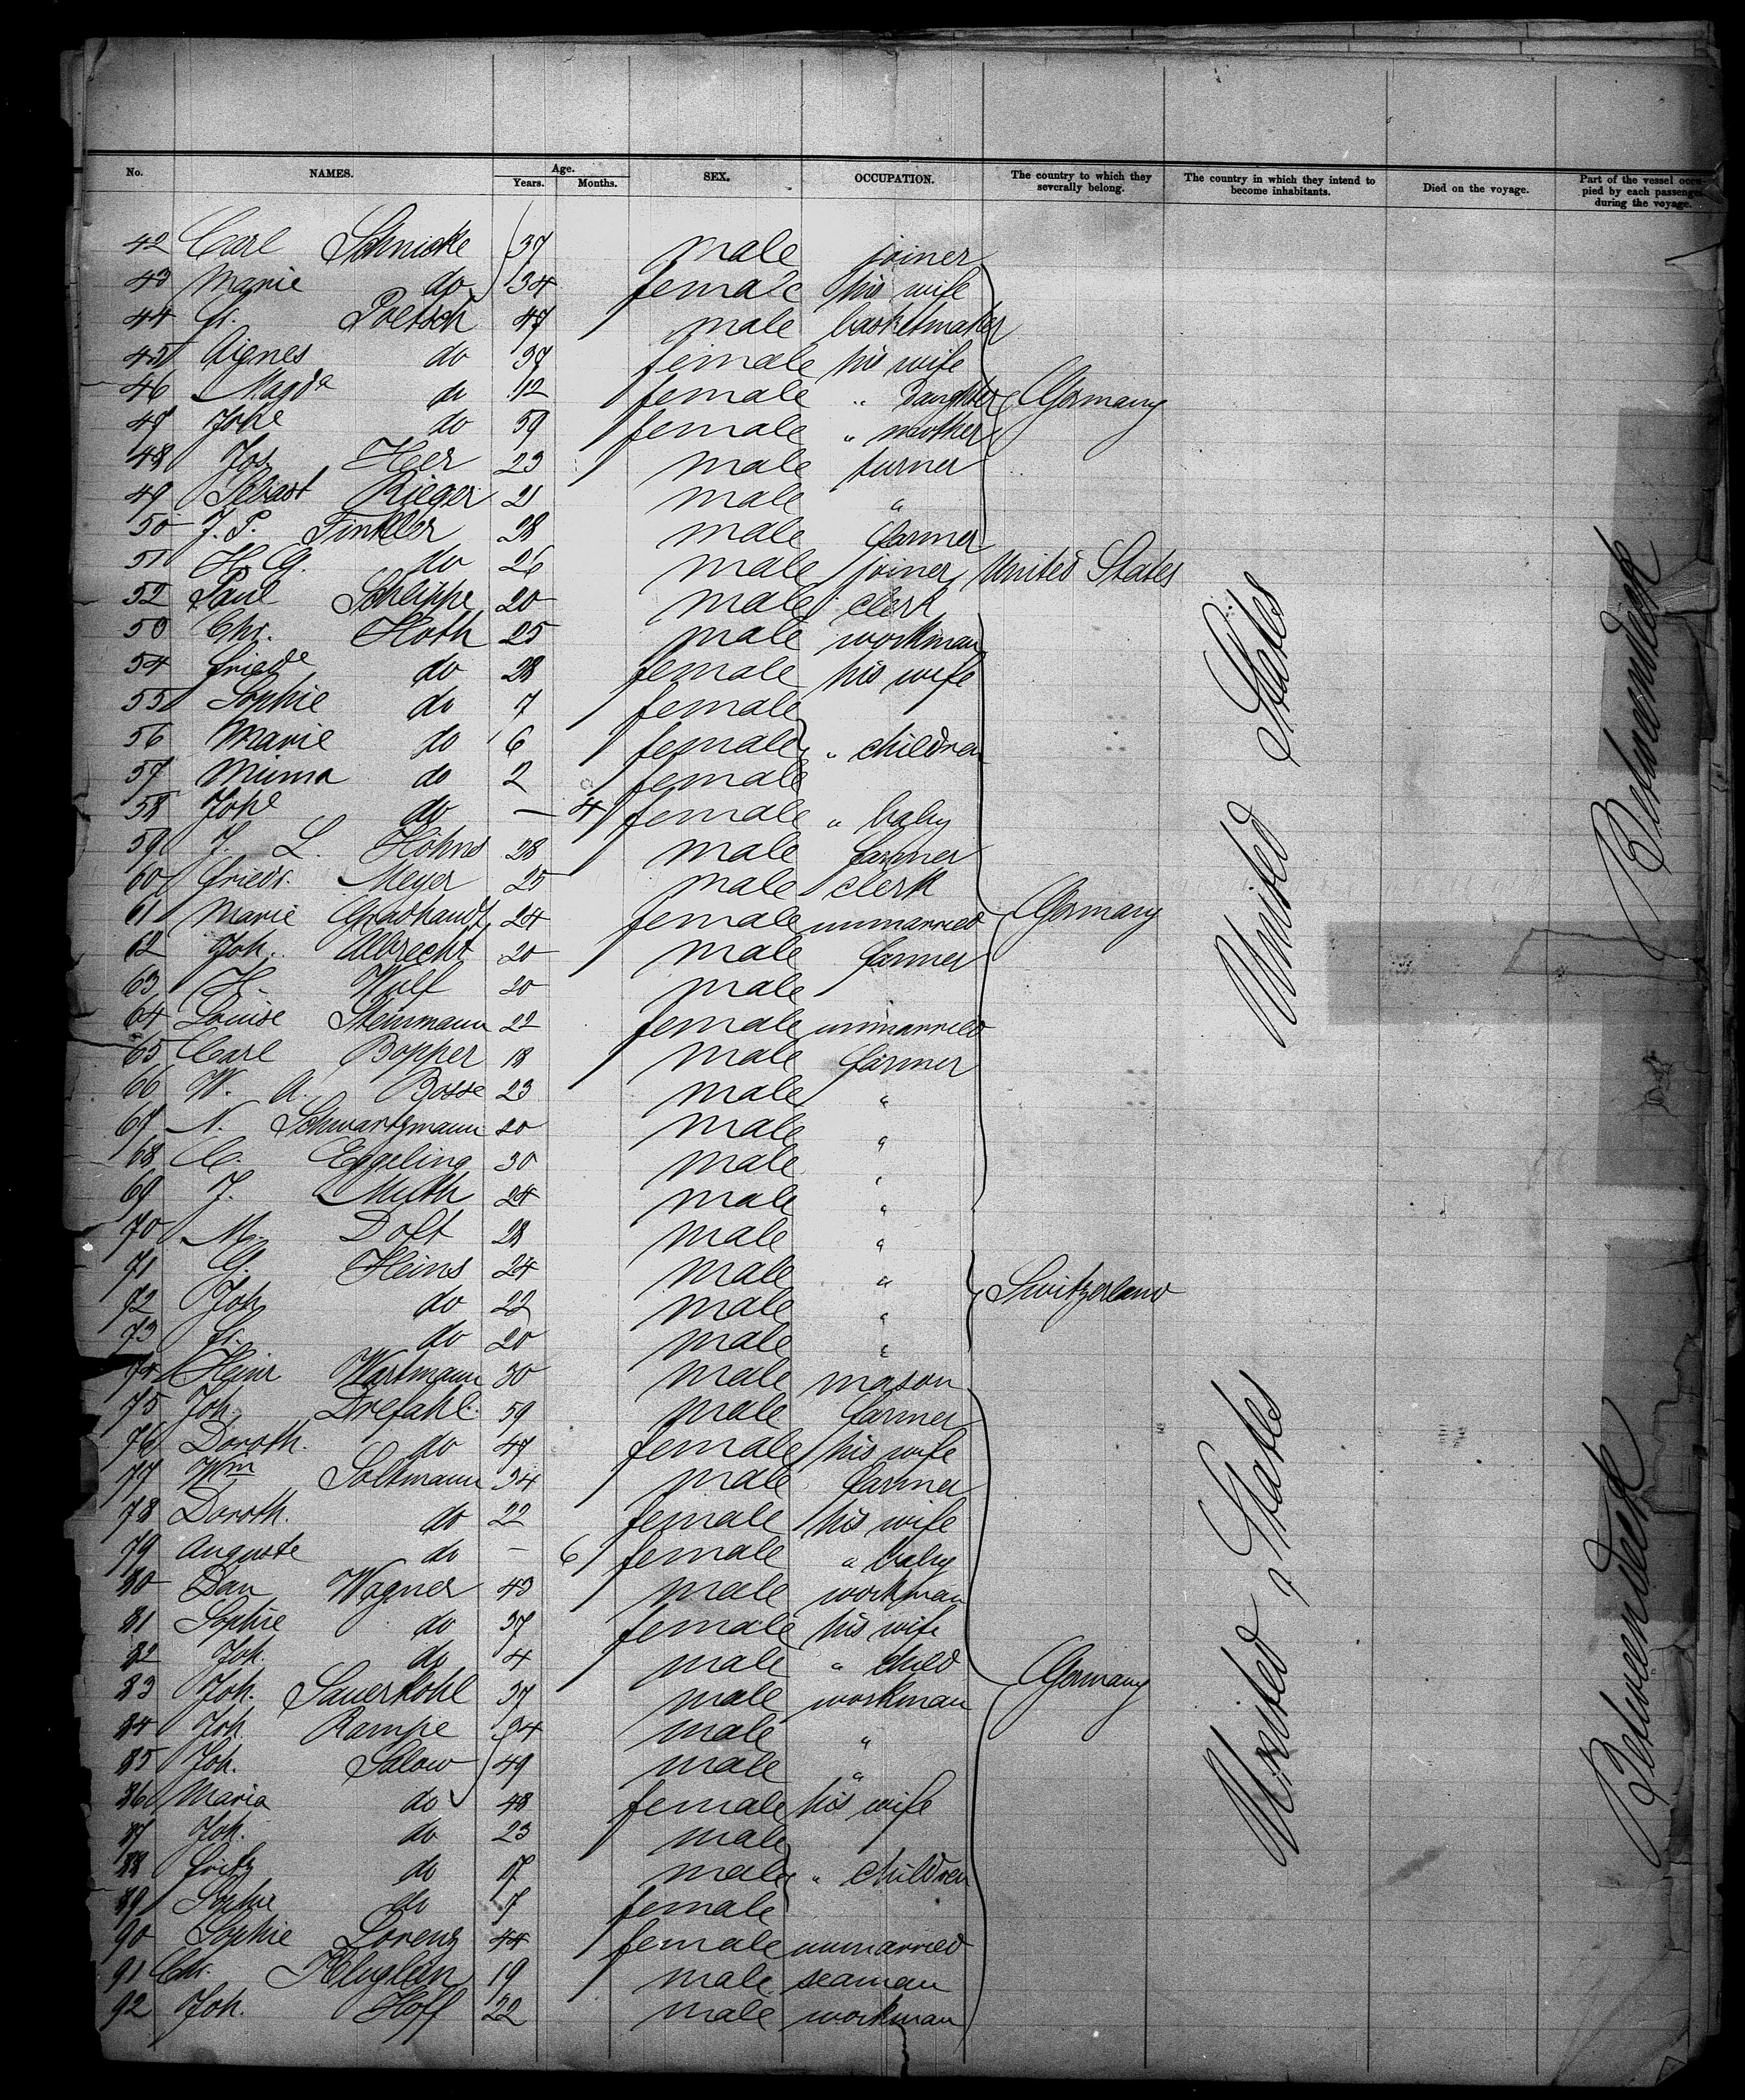 No. NAMES. Age. Years. Months. SEX. OCCUPATION. The country to which they severally belong. The country in which they intend to become inhabitants. Died on the voyage. Part of the vessel occupied by each passenger during the voyage.
42 Carl Schnicke 37 male joiner
43 Marie do 34 female his wife
44 Fr. Poetsch 47 male basketmaker
45 Agnes do 37 female his wife
46 Magda do 12 female " daughter Germany
47 Johe do 59 female " mother
48 Jos Iler 23 male turner
49 Sebast Rieger 21 male "
50 J. P. Finkler 28 male farmer
51 H. G. do 26 male joiner United States
52 Paul Schlippe 20 male clerk
53 Chr. Hoth 25 male workman
54 Friede do 28 female his wife
55 Sophie do 7 female
56 Marie do 6 female " children
57 Minna do 2 female
58 Johe do — 4 female " baby
59 J. L. Höhns 28 male farmer
60 Friedr. Meyer 25 male clerk
61 Marie Gradhandt 24 female unmarried Germany
62 Joh. Albrecht 20 male farmer
63 H. Wulf 20 male
64 Louise Steinmann 22 female unmarried
65 Carl Bopper 18 male farmer
66 W. A. Bosse 23 male "
67 N. Schwartzmann 20 male "
68 C. Eggeling 30 male "
69 J. Muth 24 male "
70 M. Doft 28 male "
71 G. Heins 24 male " Switzerland
72 Joh do 22 male "
73 Fr. do 20 male "
74 Heinr Wartmann 30 male mason
75 Joh. Drefahl 59 male farmer
76 Doroth. do 47 female his wife
77 Wm Soltmann 34 male farmer
78 Doroth. do 22 female his wife
79 Auguste do — 6 female " baby
80 Dan Wagner 43 male workman
81 Sophie do 37 female his wife
82 Joh. do 4 male " child
83 Joh. Sauerkohl 37 male workman Germany
84 Joh. Rampe 34 male "
85 Joh. Salow 49 male "
86 Maria do 48 female his wife
87 Joh. do 23 male
88 Fritz do 17 male " children
89 Sophie do 7 female
90 Sophie Lorenz 44 female unmarried
91 Chr. Kluglein 19 male seaman
92 Joh. Hoff 22 male workman
United States
Betweendeck
United States
Betweendeck